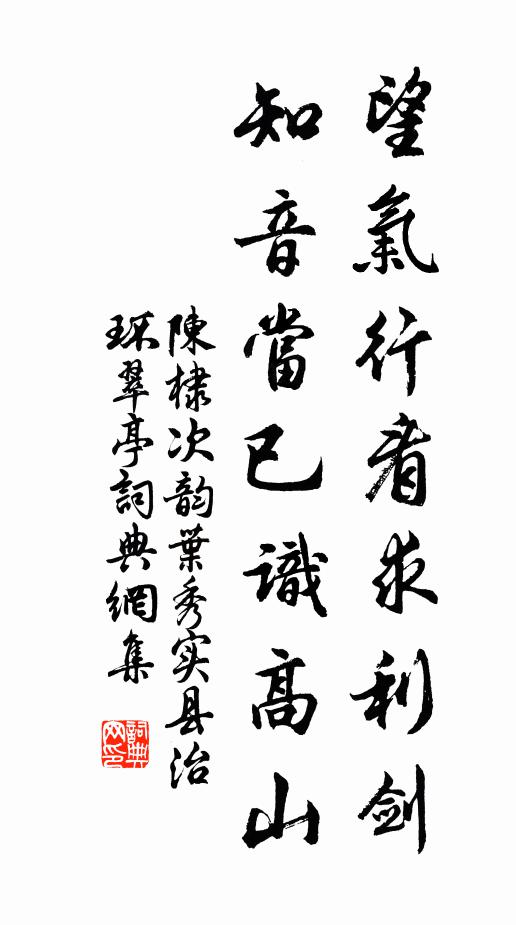 望氣行看求利劍
知音當已識高山
陳棣次韵葉秀实县治
环翠亭詞典網集
詞典网印